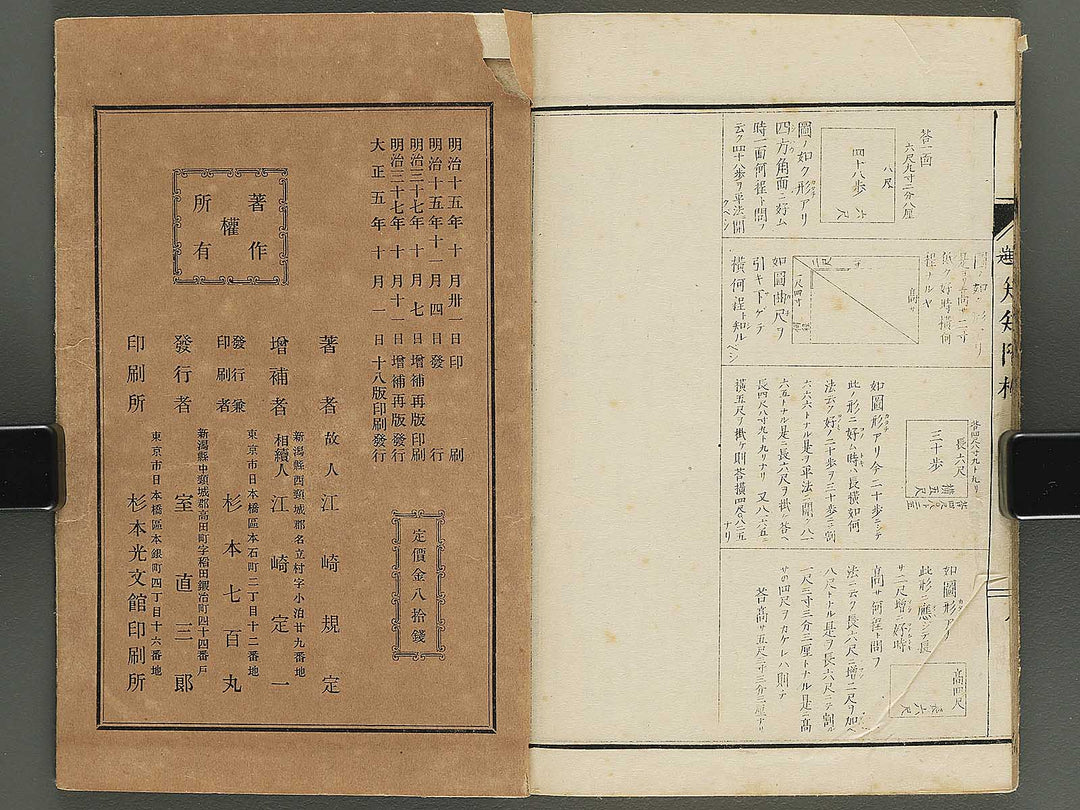 答一面
六尺九寸二分八厘
八尺
四十八歩
六尺
圖ノ如ク形アリ
四方角面ニ好ム
時一面何程ト問フ
云ク四十八歩ヲ平法ニ開
クベシ
高サ
一尺四寸
如圖曲尺ヲ
引キ下ゲテ
横何程ト知ルベシ
長六尺
三十歩
横五尺
如圖形アリ今二十歩ニシテ
此ノ形ニ好ム時ハ長横如何
法云ク好ノ二十歩ヲ三十歩ニ割
六六六トナル是ヲ平法ニ開ク八一
六五トナル是ニ長六尺ヲ掛ル答ヘ
長四尺八寸九ト九リナリ
又八一六五ニ
横五尺ヲ掛ル則答横四尺〇八二五
ナリ
高四尺
長六尺
如圖形アリ
此形ニ應ジテ長
サ二尺増ニ好時
高サ何程ト問フ
法ニ云ク長六尺ニ増二尺ヲ加ヘ
八尺トナル是ヲ長六尺ニテ割ル
一尺三寸三分三厘トナル是ニ高
サの四尺ヲカケルハ則チ
答高サ五尺三寸三分三厘ナリ
明治十五年十月卅一日印刷
明治十五年十一月四日發行
明治三十七年十月七日増補再版印刷
明治三十七年十月十一日増補再版發行
大正五年十月一日十八版印刷發行
定價金八拾錢
著作
權
所有
著者
故人
江崎規定
新潟縣西頸城郡名立村字小泊廿九番地
増補者
相續人
江崎定一
東京市日本橋區本石町二丁目十二番地
發行兼
印刷者
杉本七百丸
新潟縣中頸城郡高田町字稻田鍛冶町四十四番戸
發行者
室直三郎
東京市日本橋區本銀町四丁目十六番地
印刷所
杉本光文館印刷所